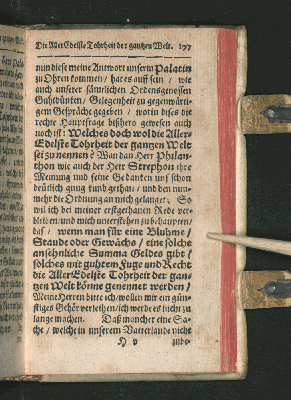 Die AllerEdelste Tohrheit der gantzen Welt. 177
nun diese meine Antwort unserm Palatin
zu Ohren kommen / hat es auff sein / wie
auch unserer sämtlichen Ordensgenossen
Guhtdünken / Gelegenheit zu gegenwärti-
gem Gespräche gegeben / worin dieses die
rechte Hauptfrage bißhero gewesen auch
noch ist: Welches doch wol die Aller-
Edelste Tohrheit der gantzen Welt
sei zu nennen? Wan dan Herr Philan-
thon wie auch der Herr Strephon ihre
Meinung und seine Gedanken uns schon
deutlich gnug kund gethan / und den nun-
mehr die Ordnung an mich gelanget; So
wil ich bei meiner erstgethanen Rede ver-
bleiben / und mich unterstehen zu behaupten /
daß / wenn man für eine Bluhme /
Staude oder Gewächs / eine solche
ansehnliche Summa Geldes gibt /
solches mit guhtem Fuge und Recht
die AllerEdelste Tohrheit der gan-
tzen Welt könne genennet werden /
Meine Herren bitte ich / wollen mir ein gün-
stiges Gehör verleihen / ich werde es nicht zu
lange machen. Daß mancher eine Sa-
che / welche in unserem Vatterlande nicht
H v zube-